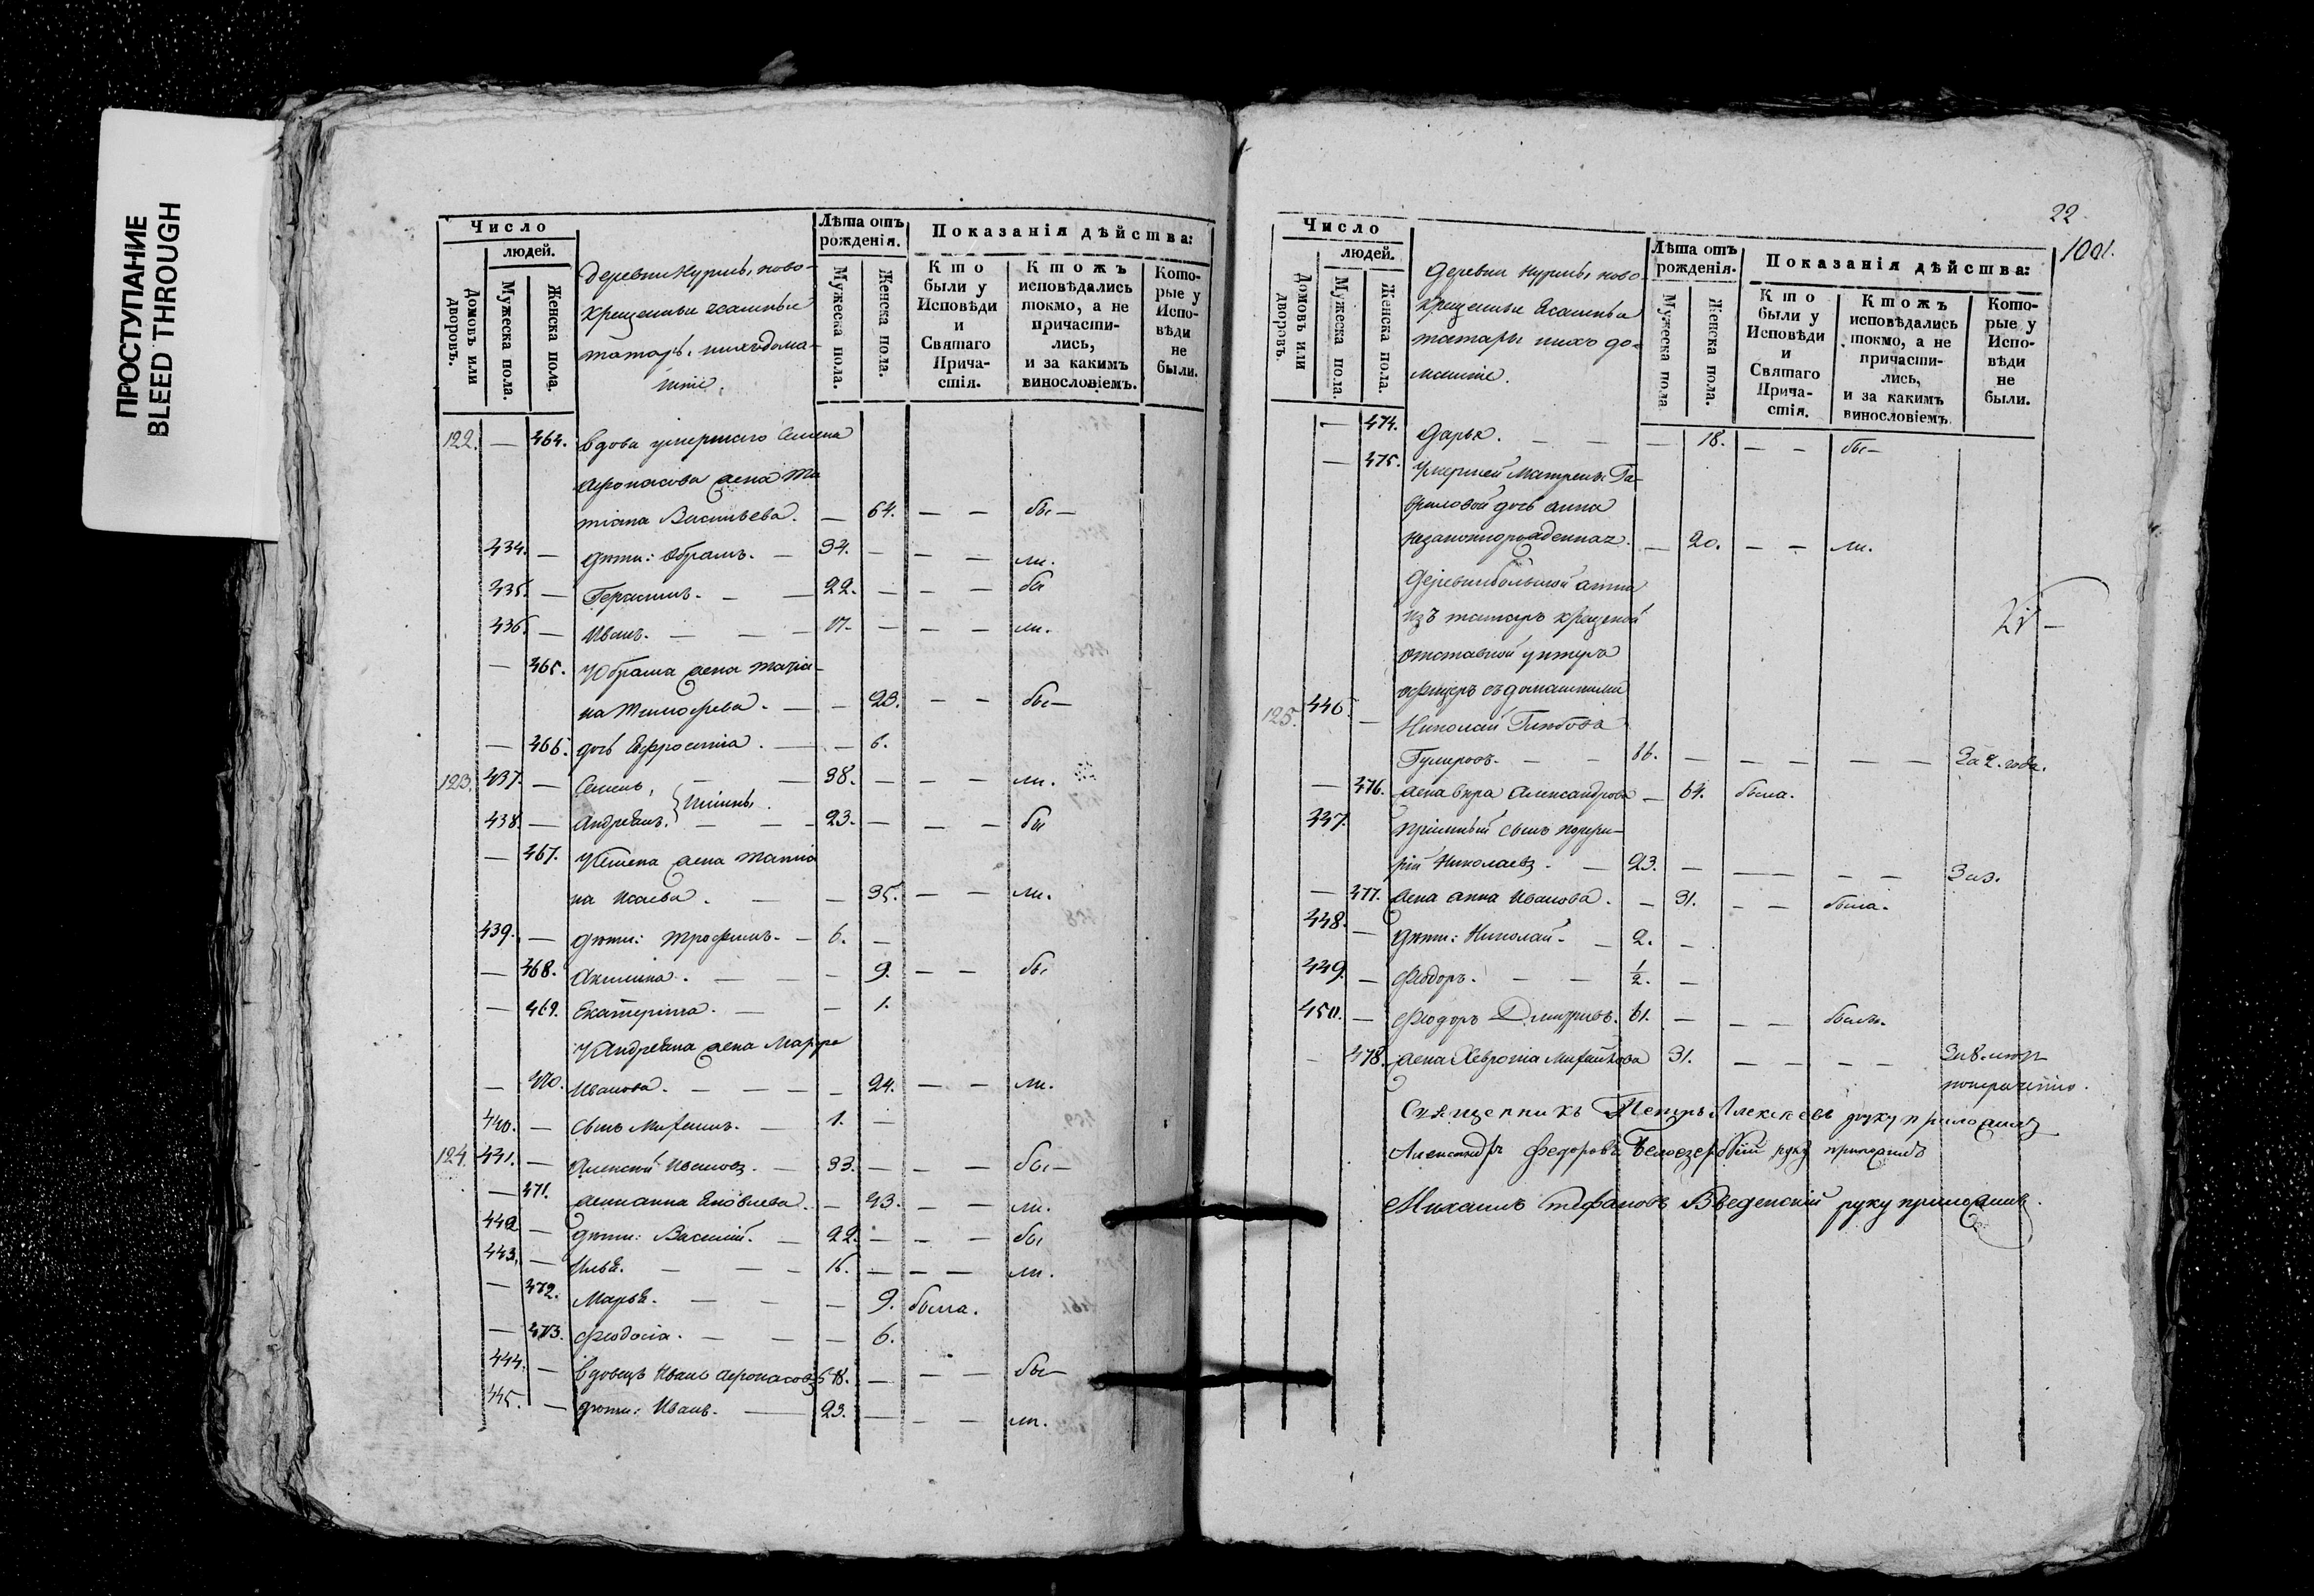 ПРОСТУПАНИЕ
BLEED THROUGH
Число
людей.
Домовъ или дворовъ.
Мужеска пола.
Женска пола.
деревни Курмы, ново-
крещенные ясашные
татары, и ихъ дома-
шніе.
Лѣта отъ рожденія.
Мужеска пола.
Женска пола.
Показанія дѣйства:
Кто были у Исповѣди и Святаго Прича-стія.
Ктожъ исповѣдались токмо, а не причасти-лись, и за какимъ винословіемъ.
Кото-рые у Испо-вѣди не были.
122. — 464. вдова умершаго Семена
Афонасова жена Та
тіана Васильева. — 64. — — бы —
434. — дѣти: Абрамъ. — 34. — — — ли.
435. — Герасимъ. — — 22. — — — бы
436. — Иванъ. — — — 17. — — — ли.
— 465. У Абрама жена Татіа-
на Тимофеева. — — 23. — — бы —
— 466. дочь Евфросинія. — — 6.
123. 437. — Семенъ, — — 38. — — — ли.
438. — Андреянъ. — — — 23. — — — бы
— 467. У Семена жена Татіа
на Исаева. — — 35. — — ли.
439. — дѣти: Трофимъ. — 6. —
— 468. Акилина. — — — 9. — — бы
— 469. Екатерина. — — 1.
У Андреяна жена Марфа
— 470. Иванова. — — — — 24. — — ли.
440. — сынъ Михаилъ. — 1. —
124. 441. — Алексей Ивановъ. — 33. — — — бы —
— 471. жена Анна Яковлева. — 43. — — ли.
442. — дѣти: Василій. — 22. — — — бы
443. — Илья. — — — 16. — — — ли.
— 472. Марья. — — — 9. была.
— 473. Феодосія. — — — 6.
444. — вдовецъ Иванъ Афонасовъ 58. — — — бы —
445. — дѣти: Иванъ. — 23. — — — ли.
22.
1001.
Число
людей.
Домовъ или дворовъ.
Мужеска пола.
Женска пола.
деревни Курмы, ново-
крещенные ясашные
татары и ихъ до-
машніе.
Лѣта отъ рожденія.
Мужеска пола
Женска пола.
Показанія дѣйства:
Кто были у Исповѣди и Святаго Прича-стія.
Ктожъ исповѣдались токмо, а не причасти-лись, и за какимъ винословіемъ.
Кото-рые у Испо-вѣди не были.
— 474. Дарья. — — — 18. — — бы —
— 475. Умершей Матрены Га-
вриловой дочь Анна
незаконнорожденная. — 20. — — ли.
деревни большой Атни
изъ татаръ крещеной
отставной унтеръ
офицеръ съ домашними
125. 446. — Николай Глебовъ
— — 86. — — — — — За 2. года.
— 476. жена Вера Александрова — 64. была.
447. пріимный сынъ Порфи-
рій Николаевъ. — 23. — — — — —
— 477. жена Анна Иванова. — 31. — — была.
448. — дѣти: Николай. — 2. —
449. — Федоръ. — — 1/2. —
450. — Феодоръ Дмитріевъ. 61. — — — былъ.
— 478. жена Хеврошія Михайлова 31. — — — —
Священникъ Петръ Алексеевъ руку приложилъ
Александръ Федоровъ Белозерскій руку приложилъ
Михаилъ Стефановъ Введенскій руку приложилъ.